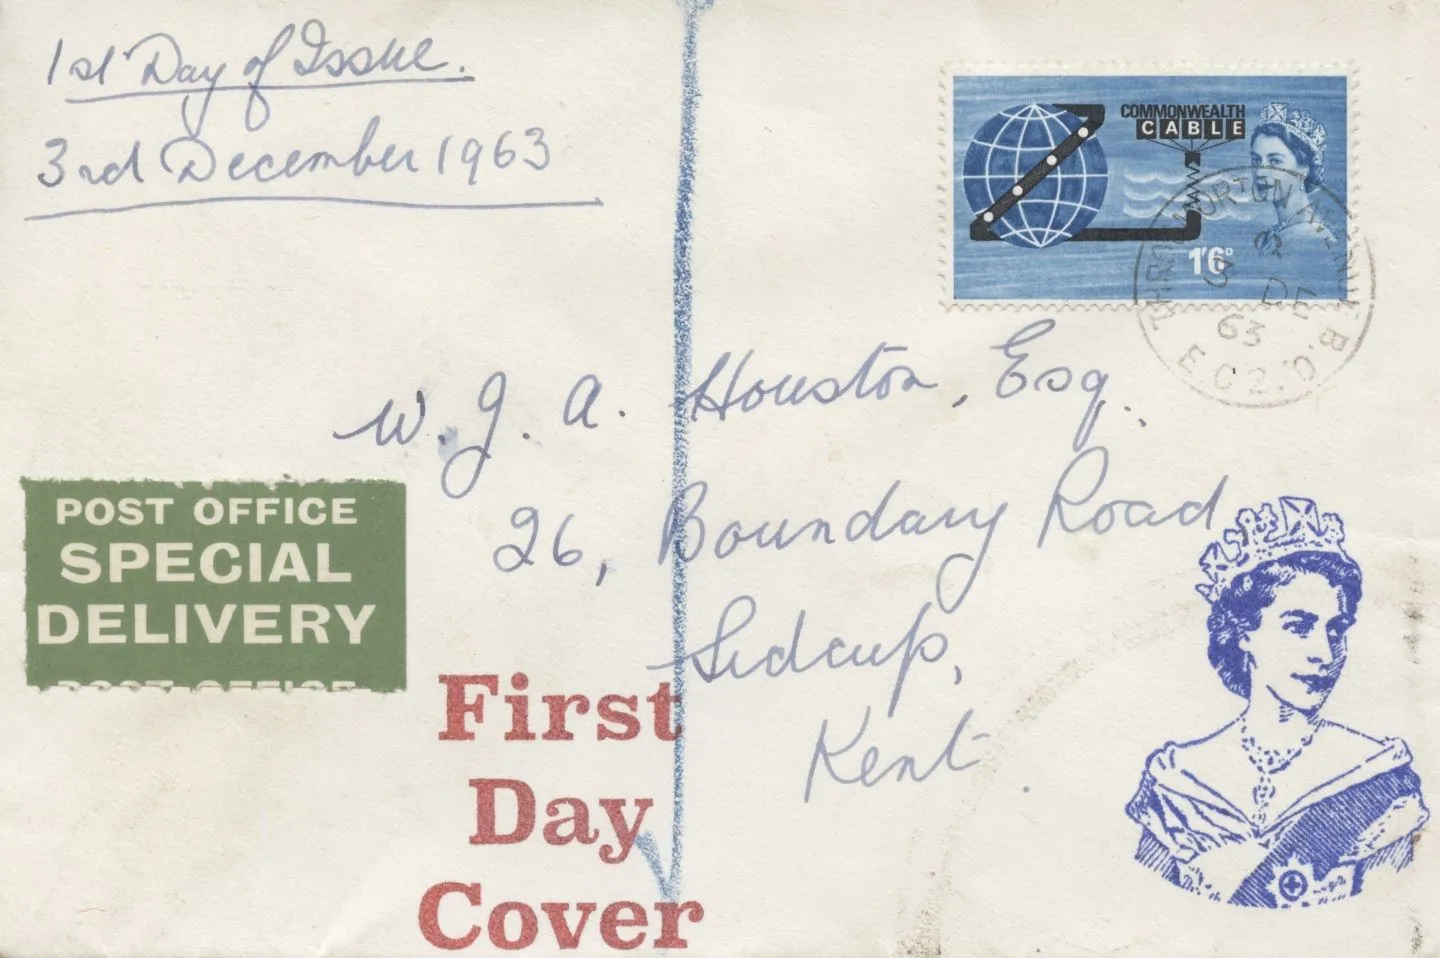 1st Day of Issue.
3rd December 1963
COMMONWEALTH
CABLE
1'6D
THROGMORTON AVENUE B.O.
3 DE
63
E.C.2.
W. J. A. Houston, Esq.
26, Boundary Road
Sidcup,
Kent.
POST OFFICE
SPECIAL
DELIVERY
POST OFFICE
First
Day
Cover